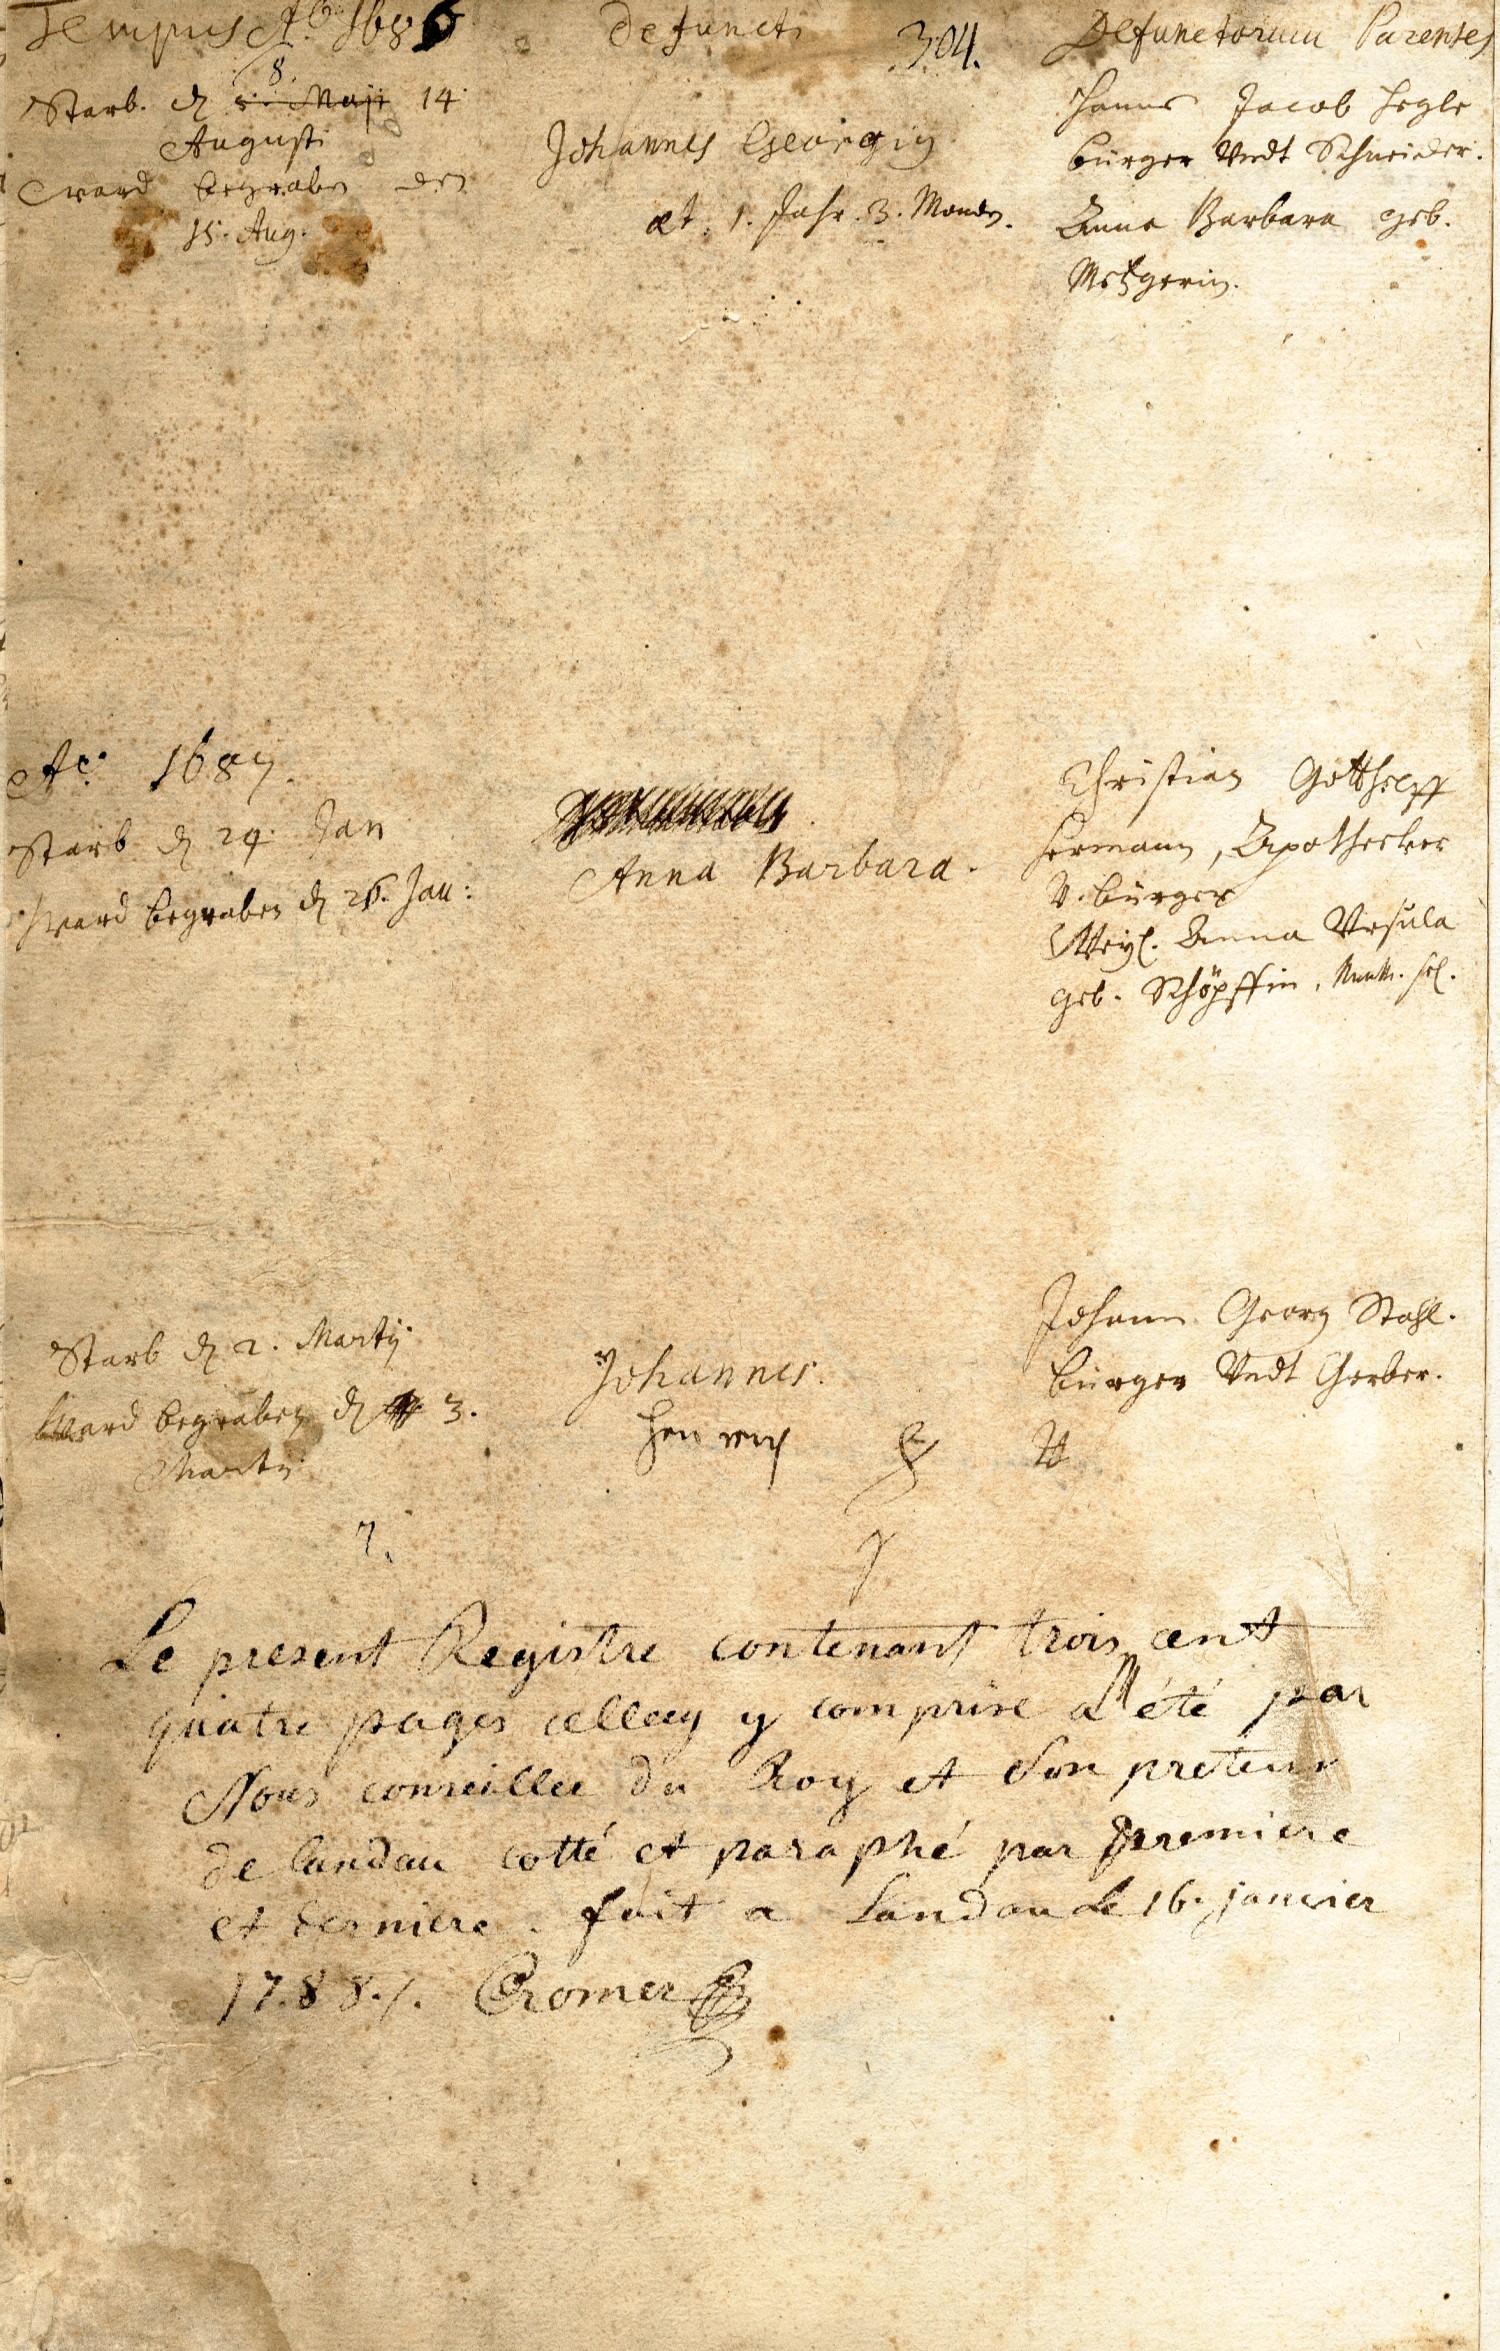 Tempus Ao. 1686
Defuncti
304.
Defunctorum Parentes
8.
Starb. d 5. Maji 14.
Augusti
ward begraben den
15. Aug.
Johannes Georgig
æt. 1. Jahr. 3. Monden.
Hanns Jacob Hegle
bürger Vndt Schneider.
Anna Barbara geb.
Metzgerin.
Ao. 1687.
Starb d 24. Jan
ward begraben d 26. Jan:
Anna Barbara.
Christian Gotthelff
Hermann, Apothecker
V. bürger
Weyl. Anna Vrsula
geb. Schöpffin,
Starb d 2. Martij.
Ward begraben d 3.
Martij
Johannes.
Henrich
Johann Georg Stahl.
bürger Vndt Gerber.
Le present Registre contenant trois cent
quatre pages cellecy y comprise a été par
Nous conseiller du Roy et Son preteur
de landau cotté et paraphé par premiere
et derniere. fait a Landau Le 16. janvier
1788./. Cromer